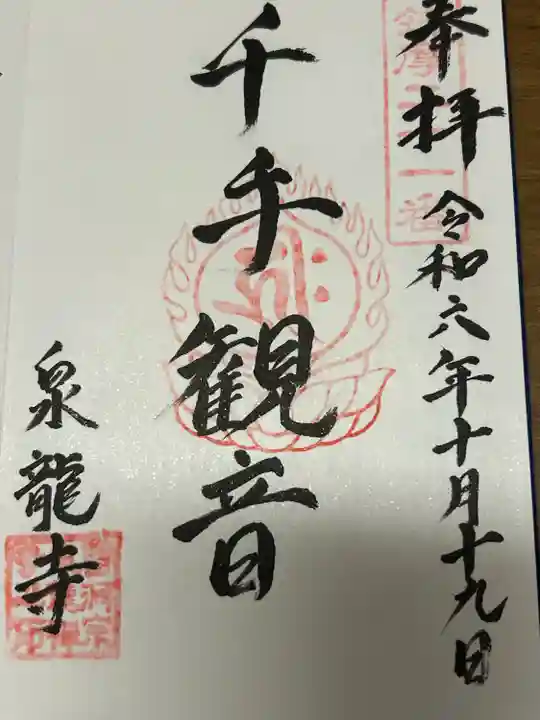 奉拝
令和六年十月十九日
千手観音
泉龍寺